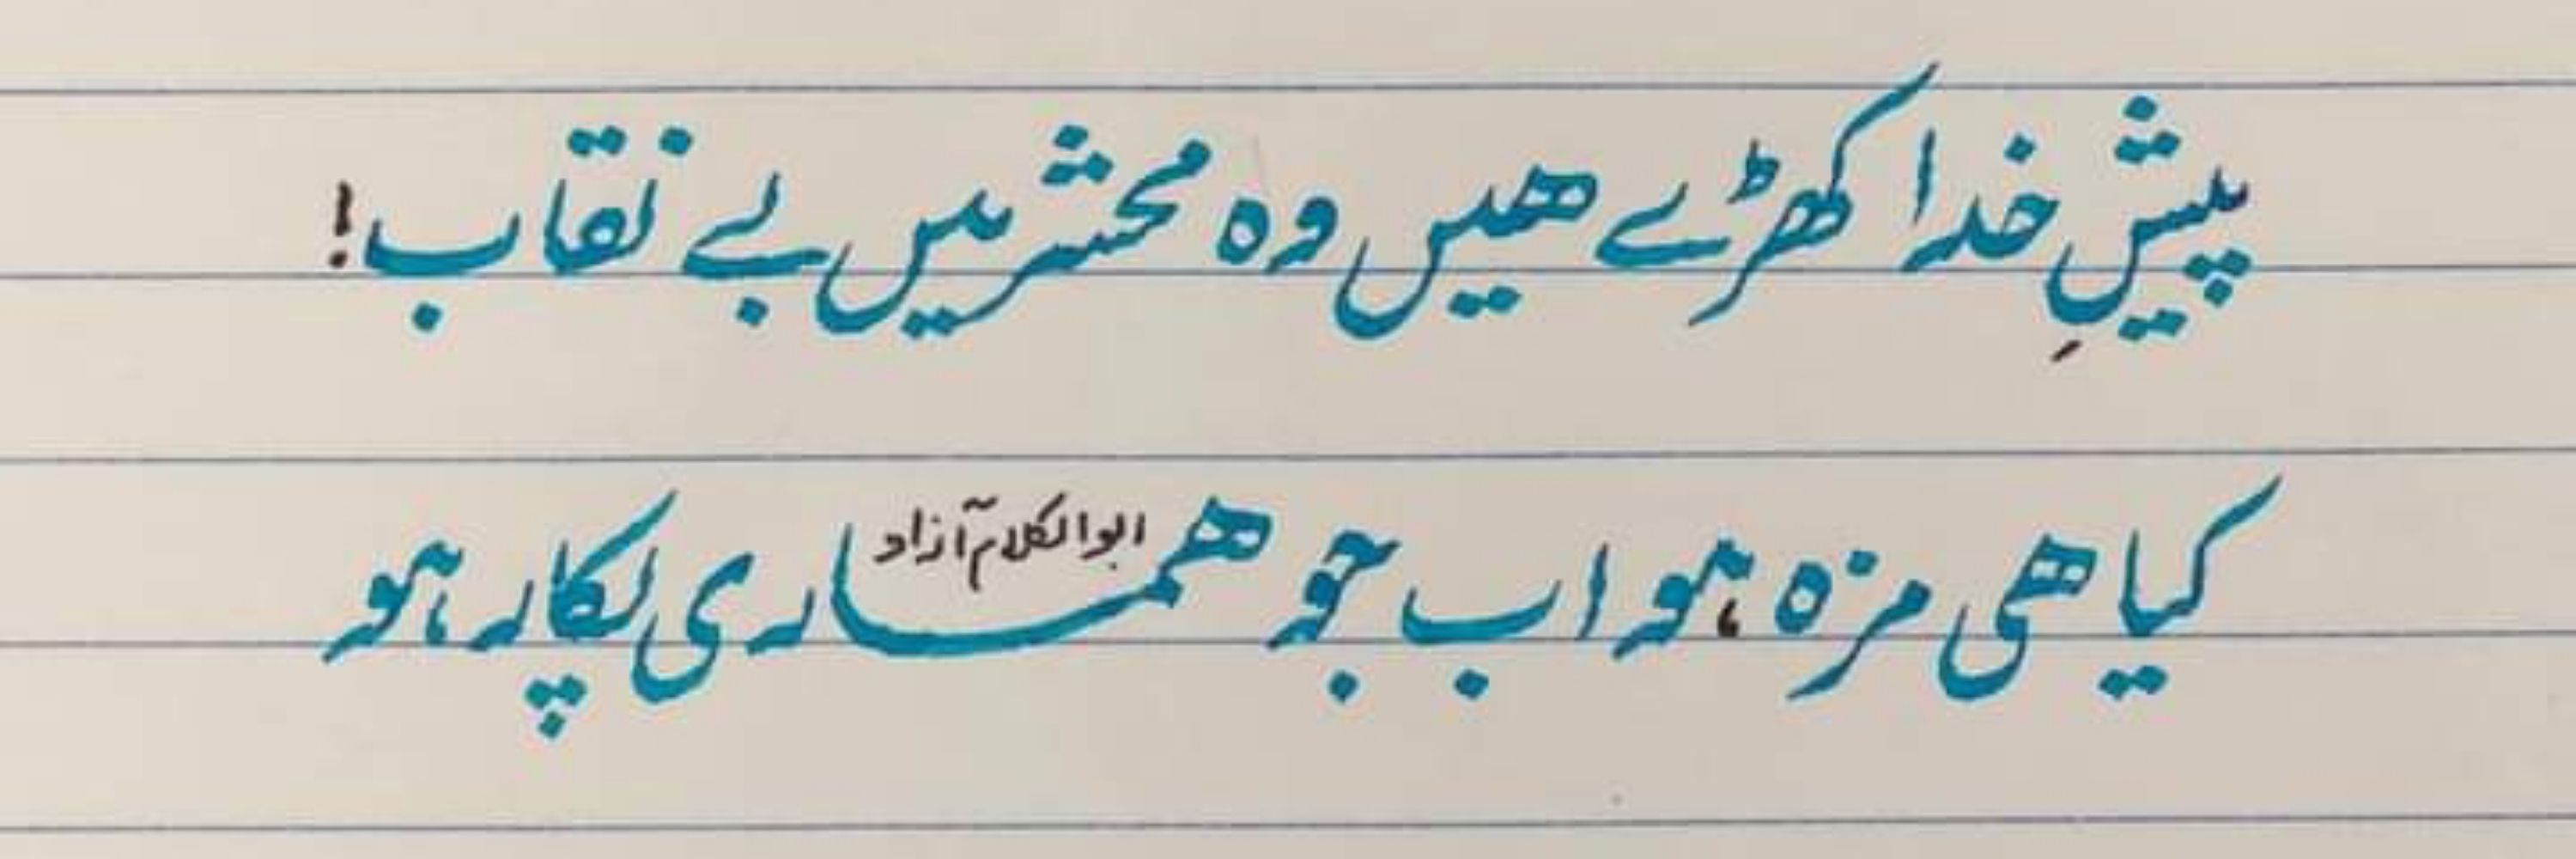 پیشِ خدا کھڑے ھیں وہ محشر میں بے نقاب!
کیا ھی مزہ ہو اب جو ھماری پکار ہو
ابوالکلام آزاد